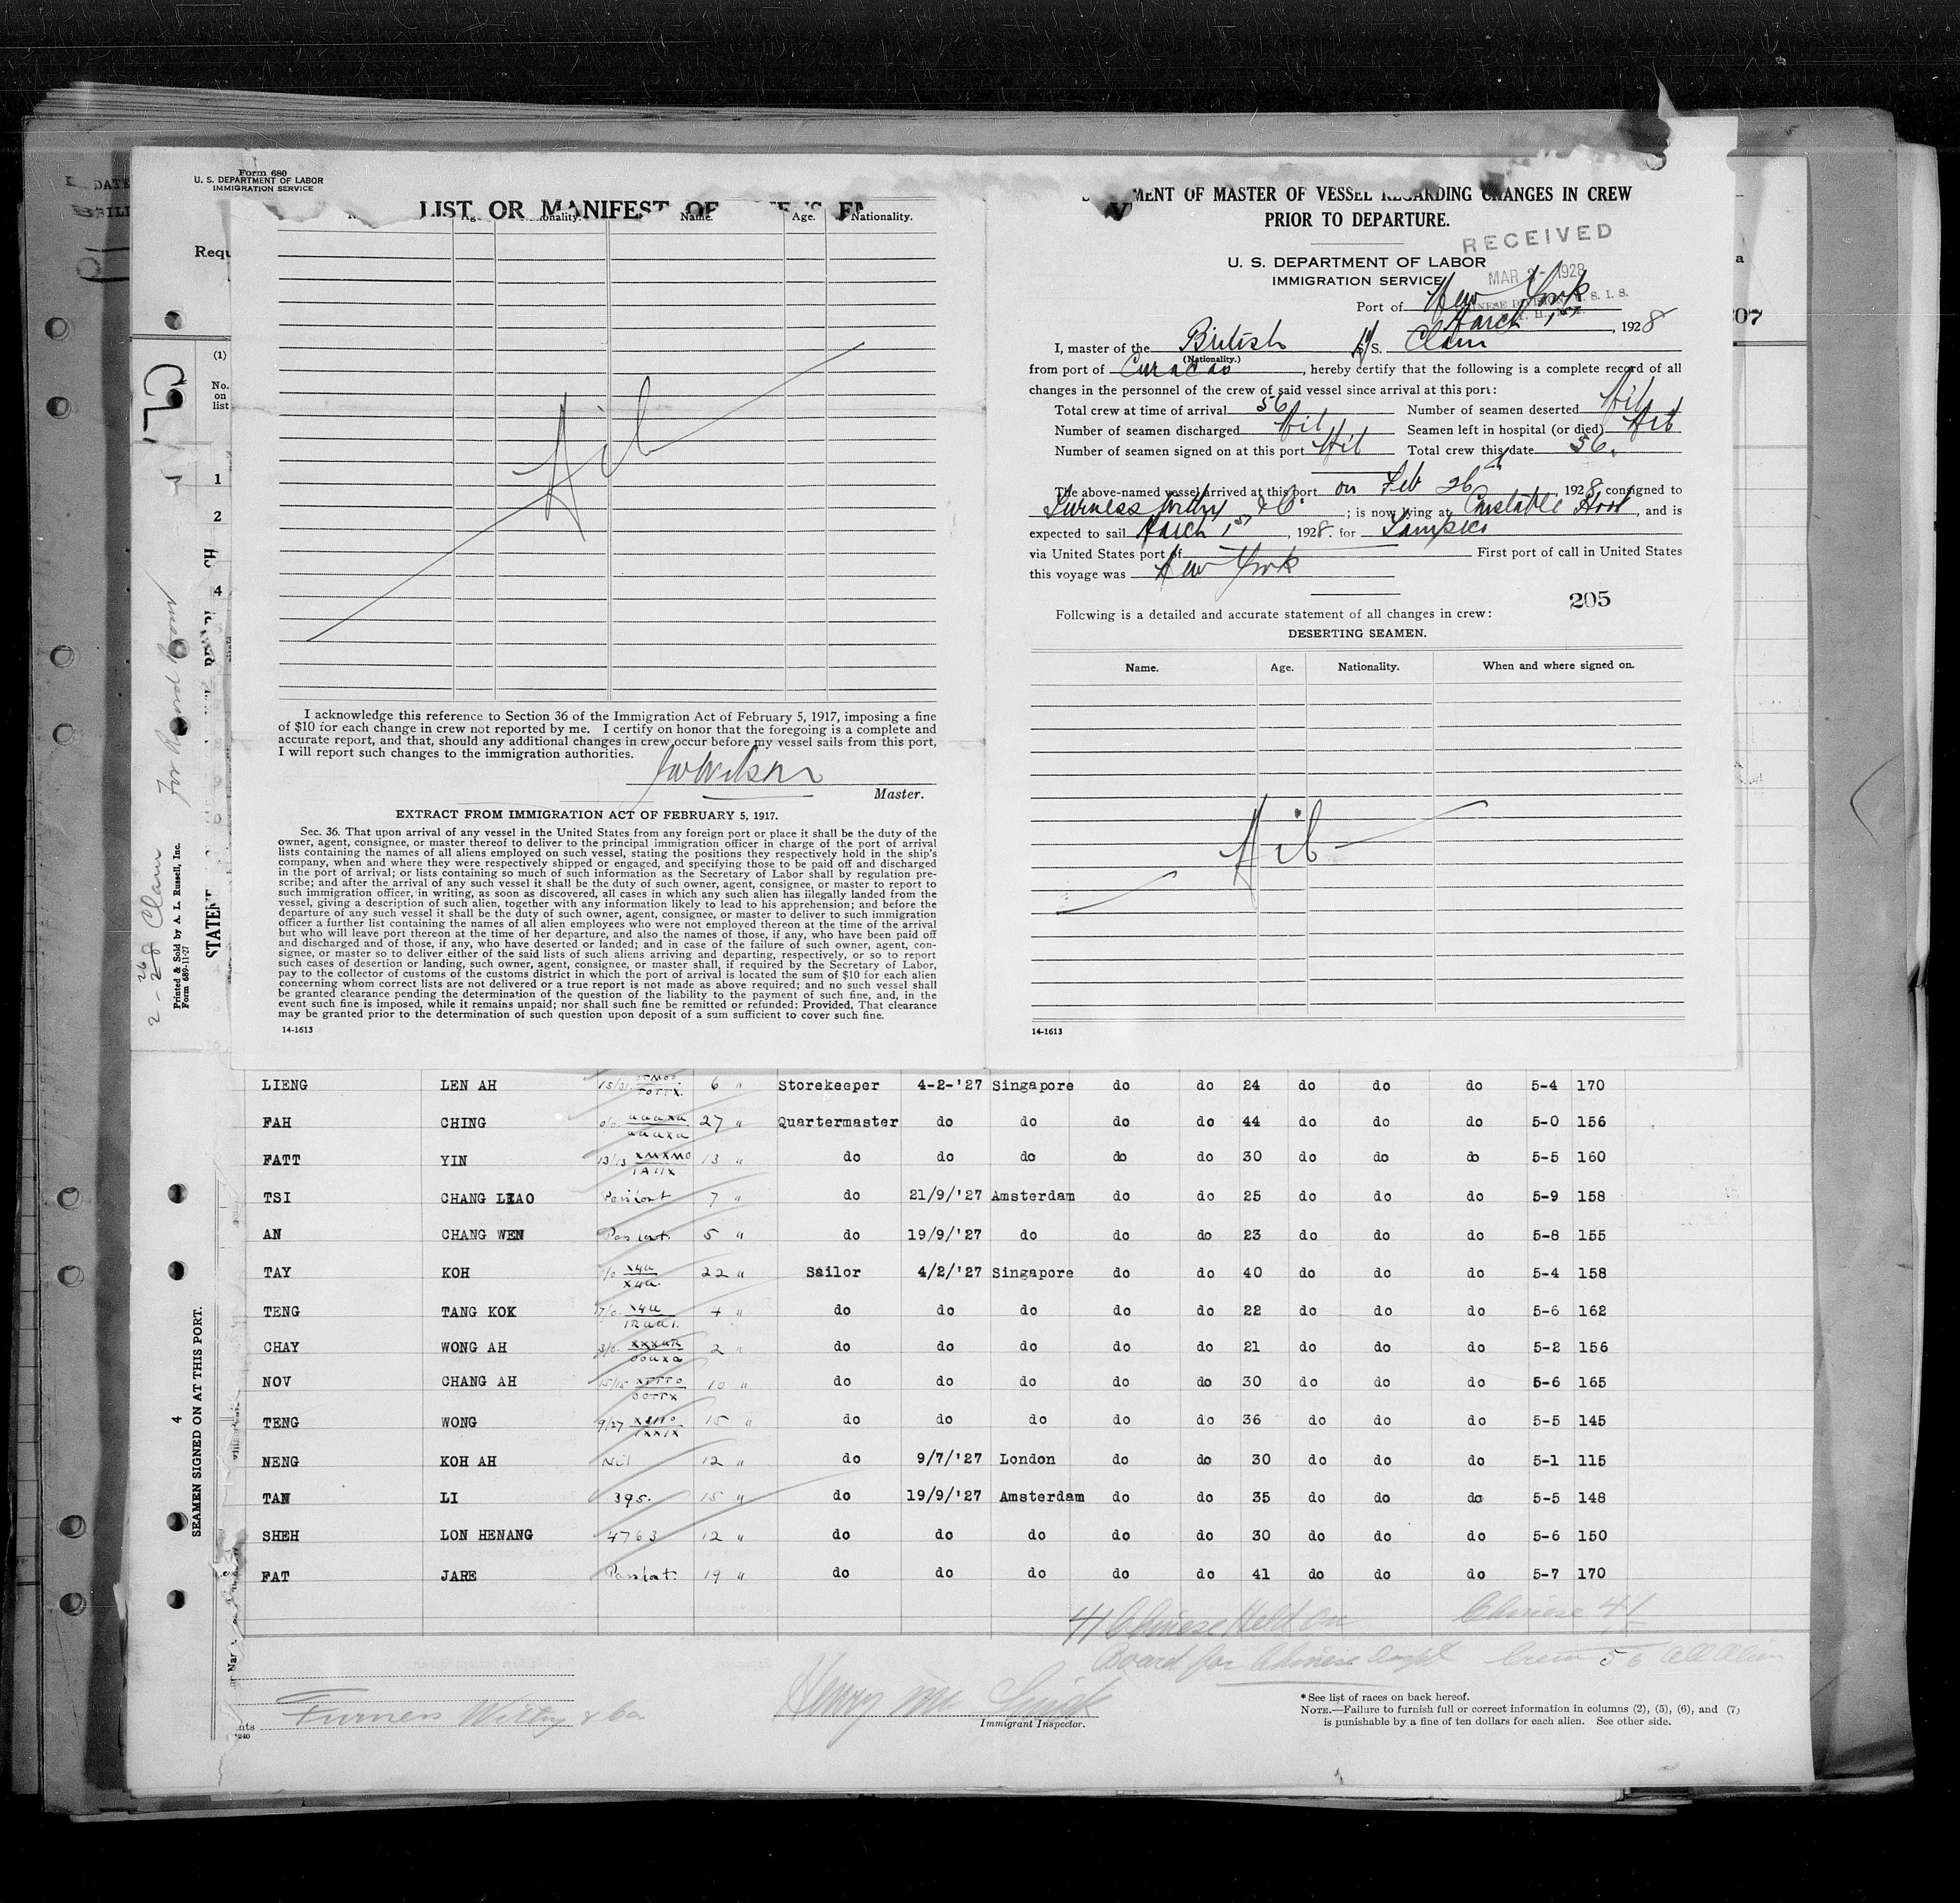 Form 680
U. S. DEPARTMENT OF LABOR
IMMIGRATION SERVICE
LIST OR MANIFEST OF
Name. Age. Nationality.
Requ
(1)
No.
on
list
1
2
4
Nil
I acknowledge this reference to Section 36 of the Immigration Act of February 5, 1917, imposing a fine
of $10 for each change in crew not reported by me. I certify on honor that the foregoing is a complete and
accurate report, and that, should any additional changes in crew occur before my vessel sails from this port,
I will report such changes to the immigration authorities.
Master.
EXTRACT FROM IMMIGRATION ACT OF FEBRUARY 5, 1917.
Sec. 36. That upon arrival of any vessel in the United States from any foreign port or place it shall be the duty of the
owner, agent, consignee, or master thereof to deliver to the principal immigration officer in charge of the port of arrival
lists containing the names of all aliens employed on such vessel, stating the positions they respectively hold in the ship's
company, when and where they were respectively shipped or engaged, and specifying those to be paid off and discharged
in the port of arrival; or lists containing so much of such information as the Secretary of Labor shall by regulation pre-
scribe; and after the arrival of any such vessel it shall be the duty of such owner, agent, consignee, or master to report to
such immigration officer, in writing, as soon as discovered, all cases in which any such alien has illegally landed from the
vessel, giving a description of such alien, together with any information likely to lead to his apprehension; and before the
departure of any such vessel it shall be the duty of such owner, agent, consignee, or master to deliver to such immigration
officer a further list containing the names of all alien employees who were not employed thereon at the time of the arrival
but who will leave port thereon at the time of her departure, and also the names of those, if any, who have been paid off
and discharged and of those, if any, who have deserted or landed; and in case of the failure of such owner, agent, con-
signee, or master so to deliver either of the said lists of such aliens arriving and departing, respectively, or so to report
such cases of desertion or landing, such owner, agent, consignee, or master shall, if required by the Secretary of Labor,
pay to the collector of customs of the customs district in which the port of arrival is located the sum of $10 for each alien
concerning whom correct lists are not delivered or a true report is not made as above required; and no such vessel shall
be granted clearance pending the determination of the question of the liability to the payment of such fine, and, in the
event such fine is imposed, while it remains unpaid; nor shall such fine be remitted or refunded: Provided, That clearance
may be granted prior to the determination of such question upon deposit of a sum sufficient to cover such fine.
14-1613
MENT OF MASTER OF VESSEL REGARDING CHANGES IN CREW
PRIOR TO DEPARTURE.
RECEIVED
MAR 1928
U. S. DEPARTMENT OF LABOR
IMMIGRATION SERVICE
Port of New York
March 1st, 1928
I, master of the British S/S. Clam
(Nationality.)
from port of Curacao, hereby certify that the following is a complete record of all
changes in the personnel of the crew of said vessel since arrival at this port:
Total crew at time of arrival 56 Number of seamen deserted Nil
Number of seamen discharged Nil Seamen left in hospital (or died) Nil
Number of seamen signed on at this port Nil Total crew this date 56.
The above-named vessel arrived at this port on Feb 26, 1928 consigned to
Furness Withy & Co.; is now lying at Constable Hook, and is
expected to sail March 1st, 1928. for Tampico
via United States port of First port of call in United States
this voyage was New York
205
Following is a detailed and accurate statement of all changes in crew:
DESERTING SEAMEN.
Name. Age. Nationality. When and where signed on.
Nil
14-1613
207
For Record Room
Clam
Printed & Sold by A. L. Russell, Inc.
Form 689-11-27
STATE
4
SEAMEN SIGNED ON AT THIS PORT.
LIENG LEN AH 6 " Storekeeper 4-2-'27 Singapore do do 24 do do do 5-4 170
FAH CHING 27 " Quartermaster do do do do 44 do do do 5-0 156
FATT YIN 13/13 13 " do do do do do 30 do do do 5-5 160
TSI CHANG LIAO 7 " do 21/9/'27 Amsterdam do do 25 do do do 5-9 158
AN CHANG WEN 5 " do 19/9/'27 do do do 23 do do do 5-8 155
TAY KOH 22 " Sailor 4/2/'27 Singapore do do 40 do do do 5-4 158
TENG TANG KOK 4 " do do do do do 22 do do do 5-6 162
CHAY WONG AH 2 " do do do do do 21 do do do 5-2 156
NOV CHANG AH 15/15 10 " do do do do do 30 do do do 5-6 165
TENG WONG 9/27 15 " do do do do do 36 do do do 5-5 145
NENG KOH AH Nil 12 " do 9/7/'27 London do do 30 do do do 5-1 115
TAN LI 395. 15 " do 19/9/'27 Amsterdam do do 35 do do do 5-5 148
SHEH LON HENANG 4763 12 " do do do do do 30 do do do 5-6 150
FAT JARE 19 " do do do do do 41 do do do 5-7 170
41 Chinese Held on Chinese 41
Board for Chinese Crew 56 all Alien
Furness Withy & Co
Henry
Immigrant Inspector.
* See list of races on back hereof.
NOTE.—Failure to furnish full or correct information in columns (2), (5), (6), and (7)
is punishable by a fine of ten dollars for each alien. See other side.